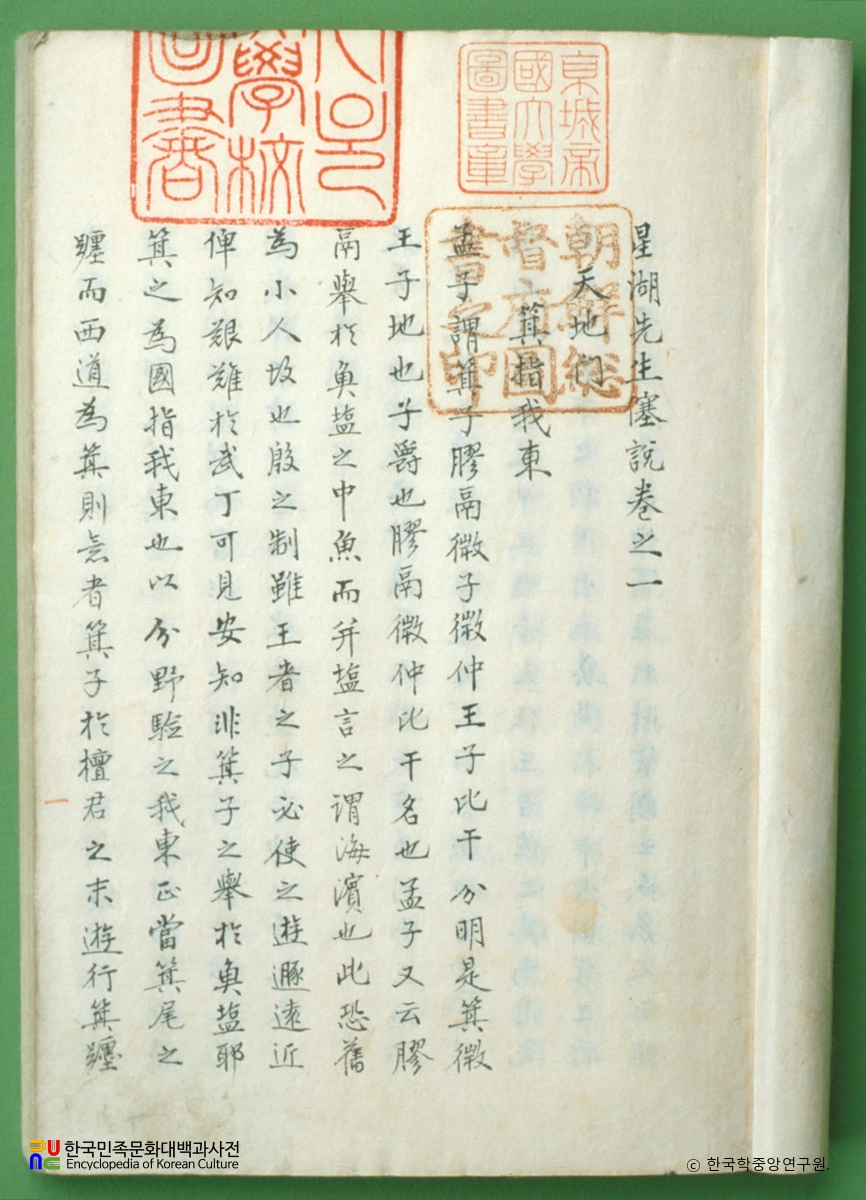 星湖先生僿說卷之一
天地门
箕指我東
孟子謂箕子膠鬲微子微仲王子比干分明是箕微
王子地也子爵也膠鬲微仲比干名也孟子又云膠
鬲舉於魚塩之中魚而并塩言之謂海濱也此恐舊
為小人故也殷之制雖王者之子必使之遊遯遠近
俾知艱難於武丁可見安知非箕子之舉於魚塩耶
箕之為國指我東也以分野驗之我東正當箕尾之
躔而西道為箕則意者箕子於檀君之末遊行箕躔
京城帝
國大學
圖書章
學校
圖書
朝鮮總
督府圖
書之印
한국민족문화대백과사전
Encyclopedia of Korean Culture
© 한국학중앙연구원.